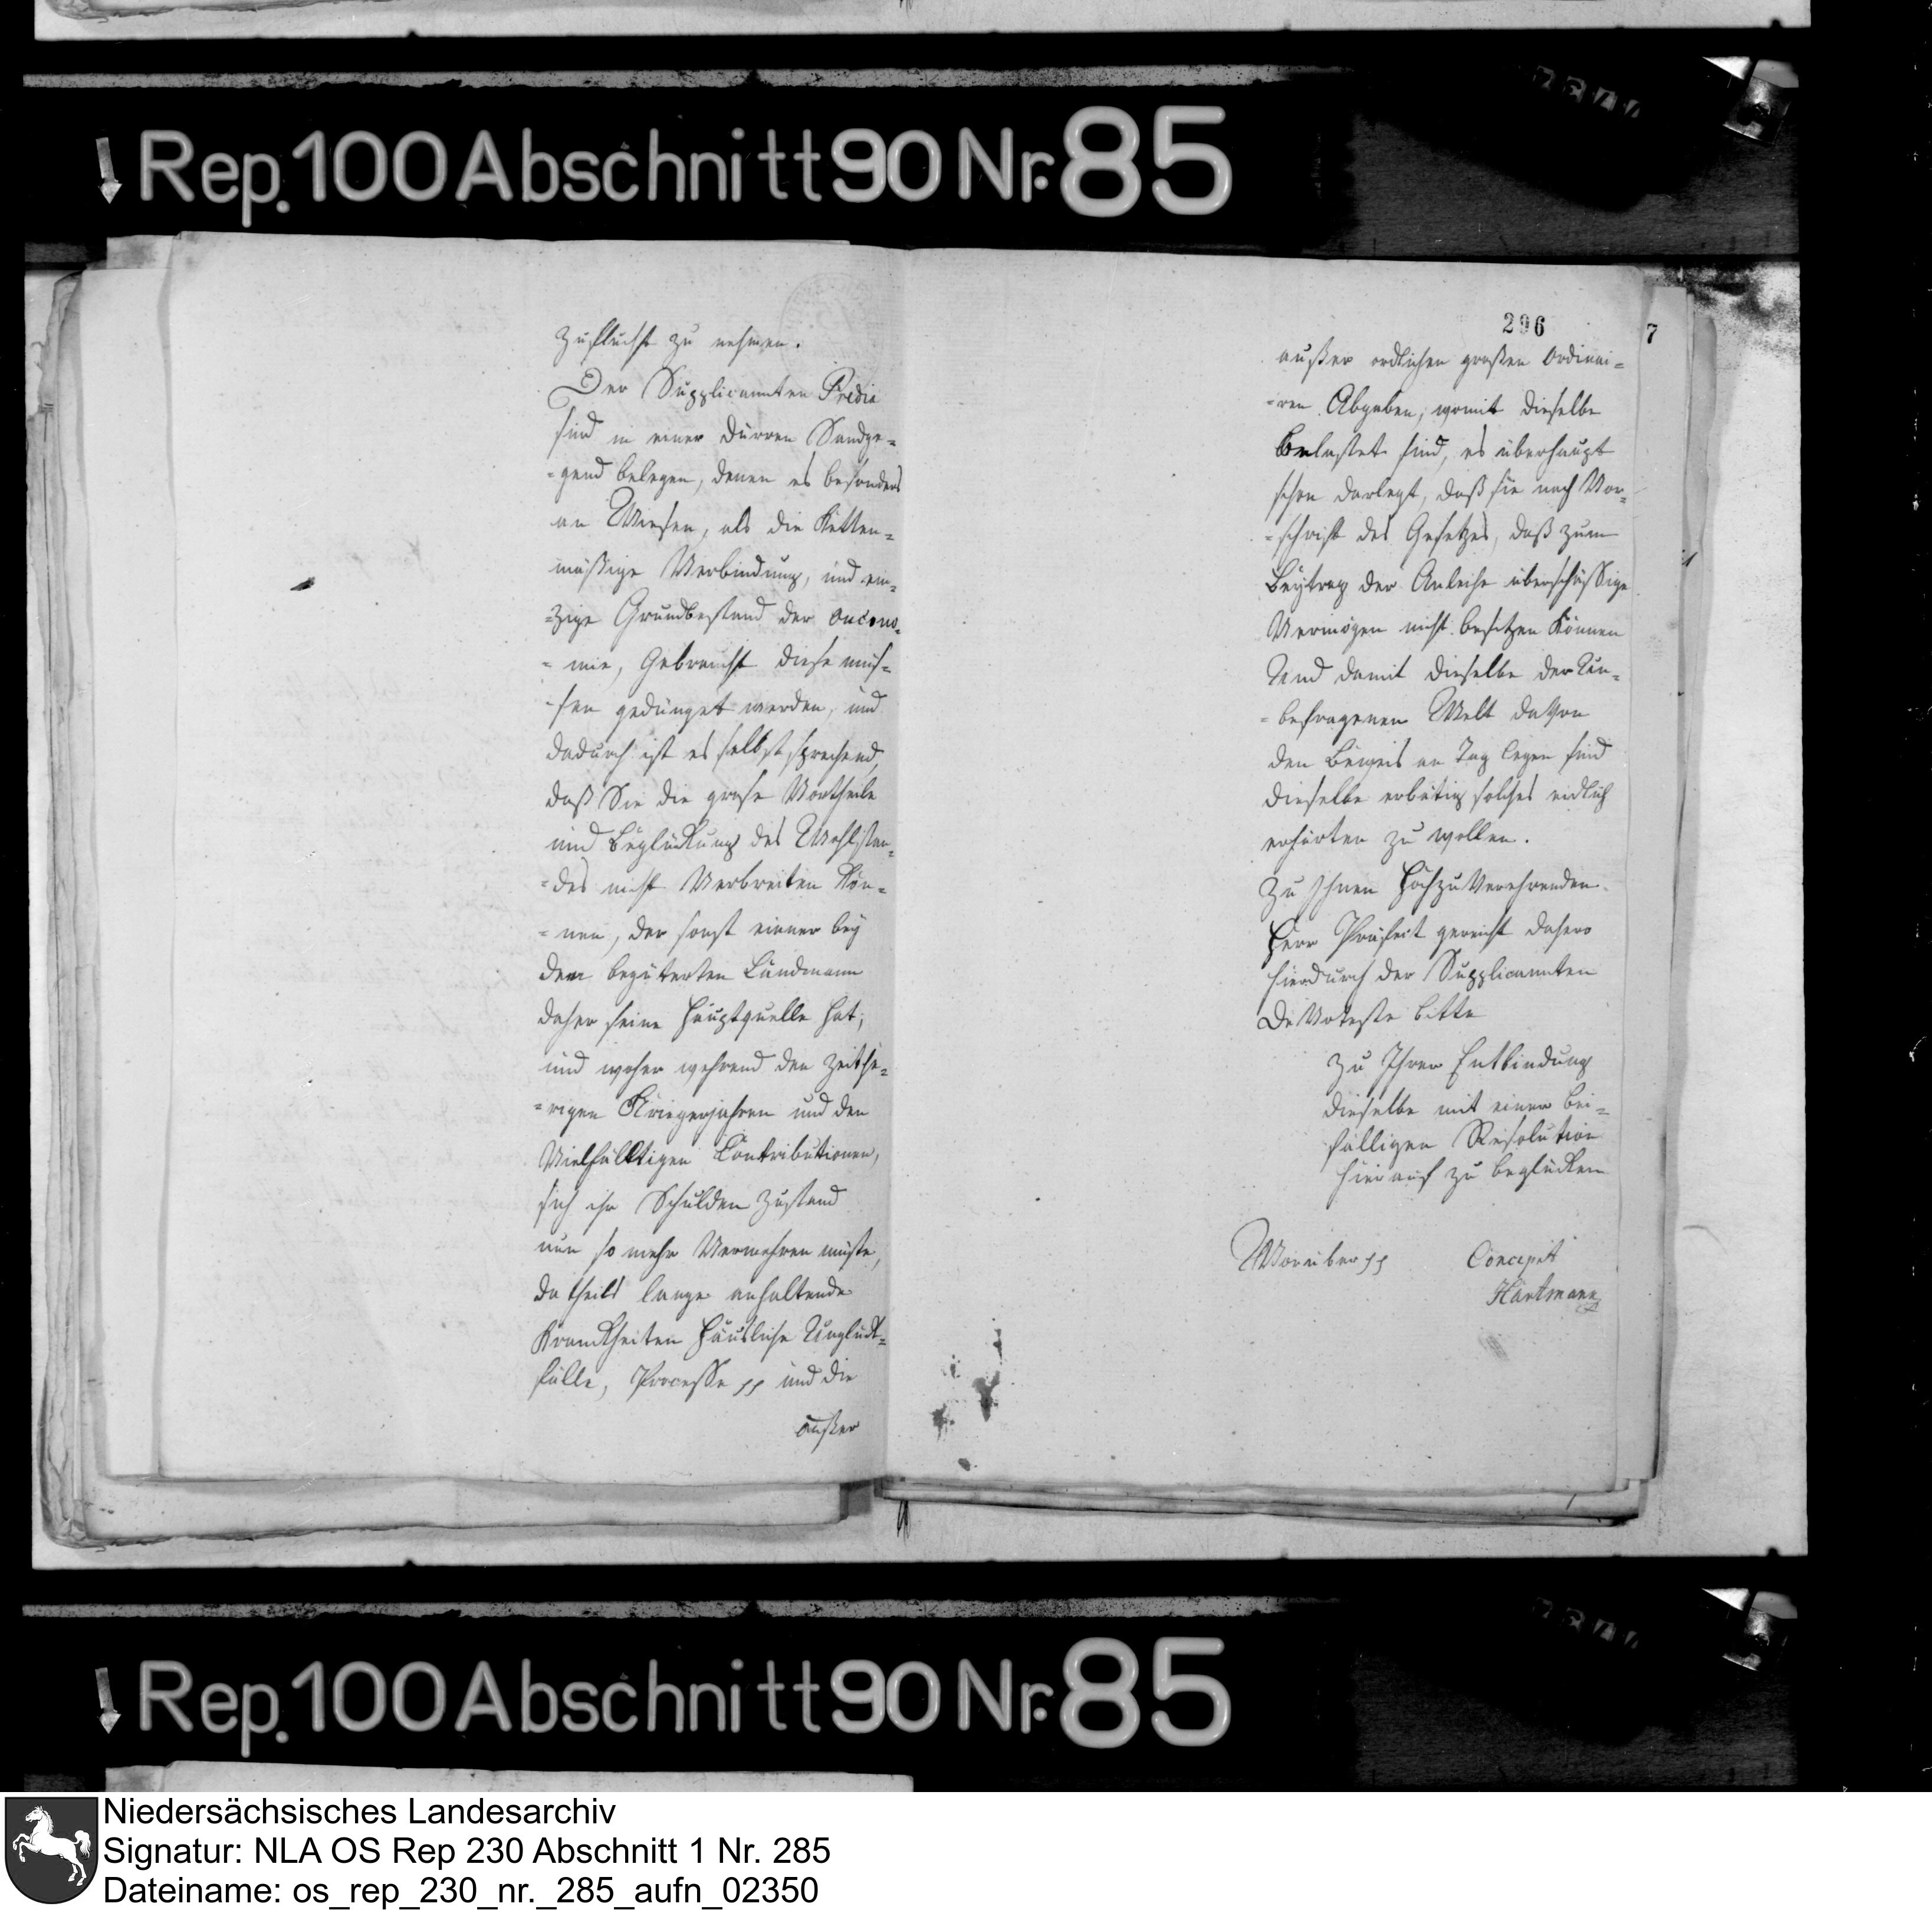 Rep. 100 Abschnitt 90 Nr. 85
Zuflucht zu nehmen.
Der Supplicannten Predia
sind in einer dürren Sandge=
=gend belegen, denen es besonders
an Wiesen, als die Ketten=
mäßige Verbindung, und ein=
=zige Grundbestand der oucono=
=mie, Gebraucht diese müs=
=sen gedünget werden, und
dadurch ist es selbst sprechend,
daß Sie die grose Vortheile
und Beglückung des Wohlstan=
=des nicht Verbreiten Kön=
=nen, der sonst einer bey
dem begüterten Landmann
daher seine Hauptquelle hat,
und woher wehrend den Zeithe=
=rigen Kriegerjahren und den
Vielfälltigen Contributionen,
sich ihr Schulden Zustand
nun so mehr Vermehren müste,
da theils lange anhaltende
Kranckheiten Häusliche Unglück=
fälle, Processe pp und die
außer
296
7
außer ordlichen großen Ordinai=
=ren Abgaben, womit dieselbe
Belastet sind, es überhaupt
schon darlegt, daß sie nach Vor=
=schrift des Gesetzes, daß zum
Beytrag der Anleihe überschüssige
Vermögen nicht besitzen Können
Und damit dieselbe der Un=
=befragenen Welt davon
den Beweis an Tag legen sind
dieselbe erbötig solches eidlich
erhärten zu wollen.
Zu Ihnen HochzuVerehrenden
Herr Präfect gereicht dahero
hierdurch der Supplicannten
DeVoteste bitte
zu Ihrer Entbindung
dieselbe mit einer bei=
fälligen Resolution
hierauf zu beglücken
Worüber pp
Concepit
Hartmann
Rep. 100 Abschnitt 90 Nr. 85
Niedersächsisches Landesarchiv
Signatur: NLA OS Rep 230 Abschnitt 1 Nr. 285
Dateiname: os_rep_230_nr._285_aufn_02350